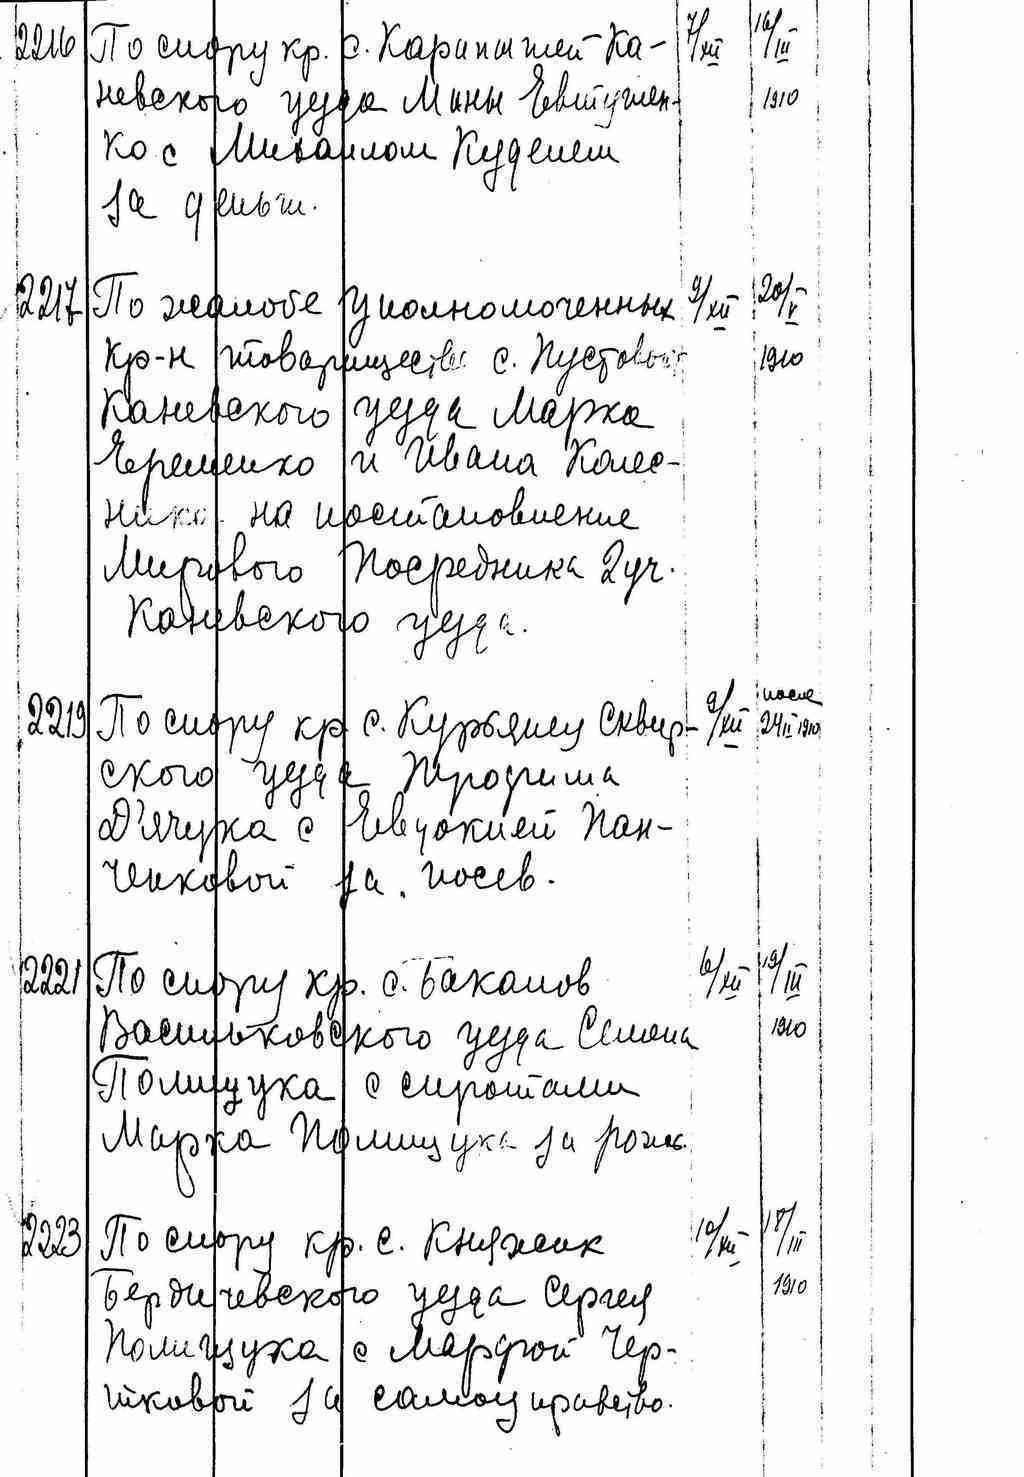 2216 По спору кр. с. Карапышей Ка- 7/XII 16/III
невского уезда Мины Евтушен- 1910
ко с Михаилом Куденем
за деньги.
2217 По жалобе уполномоченных 9/XII 20/V
кр-н товарищества с. 1910
Каневского уезда Марка
Еременко и Ивана Колес-
ника на постановление
Мирового Посредника 2 уч.
Каневского уезда.
2219 По спору кр. с. Курьянец Сквир- 9/XII после 24 II 1910
ского уезда Трофима
Д'ячука с Евдокией Пан-
ченковой за посев.
2221 По спору кр. с. Бакалов 6/XII 19/III
Васильковского уезда Семена 1910
Полищука с сиротами
Марка Полищука за рожь
2223 По спору кр. с. Княжик 10/XII 18/III
Бердичевского уезда Сергея 1910
Полищука с Марфой Чер-
тковой за самоуправство.